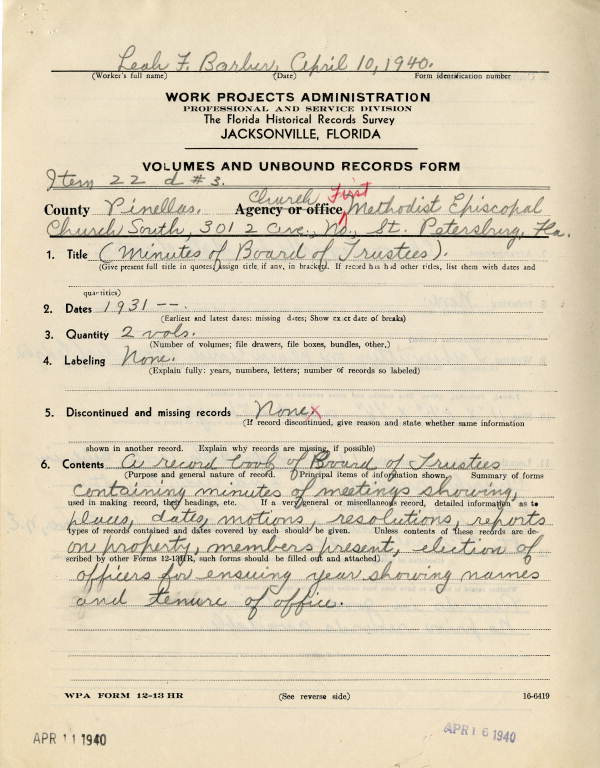 Leah F. Barber, April 10, 1940.
(Worker's full name) (Date) Form identification number
WORK PROJECTS ADMINISTRATION
PROFESSIONAL AND SERVICE DIVISION
The Florida Historical Records Survey
JACKSONVILLE, FLORIDA
VOLUMES AND UNBOUND RECORDS FORM
Item 22 d #3.
Church First
County Pinellas. Agency or office Methodist Episcopal
Church South, 301 2 Ave., No., St. Petersburg, Fla.
1. Title (Minutes of Board of Trustees).
(Give present full title in quotes, assign title, if any, in brackets. If record has had other titles, list them with dates and
quantities)
2. Dates 1931 --.
(Earliest and latest dates: missing dates; Show exact date of breaks)
3. Quantity 2 vols.
(Number of volumes; file drawers, file boxes, bundles, other,)
4. Labeling None.
(Explain fully: years, numbers, letters; number of records so labeled)
5. Discontinued and missing records None x
(If record discontinued, give reason and state whether same information
shown in another record. Explain why records are missing, if possible)
6. Contents A record book of Board of Trustees
(Purpose and general nature of record. Principal items of information shown. Summary of forms
containing minutes of meetings showing,
used in making record, they headings, etc. If a very general or miscellaneous record, detailed information as to
places, dates, motions, resolutions, reports
types of records contained and dates covered by each should be given. Unless contents of these records are de-
on property, members present, election of
scribed by other Forms 12-13HR, such forms should be filled out and attached)
officers for ensuing year showing names
and tenure of office.
WPA FORM 12-13 HR (See reverse side) 16-6419
APR 11 1940 APR 16 1940